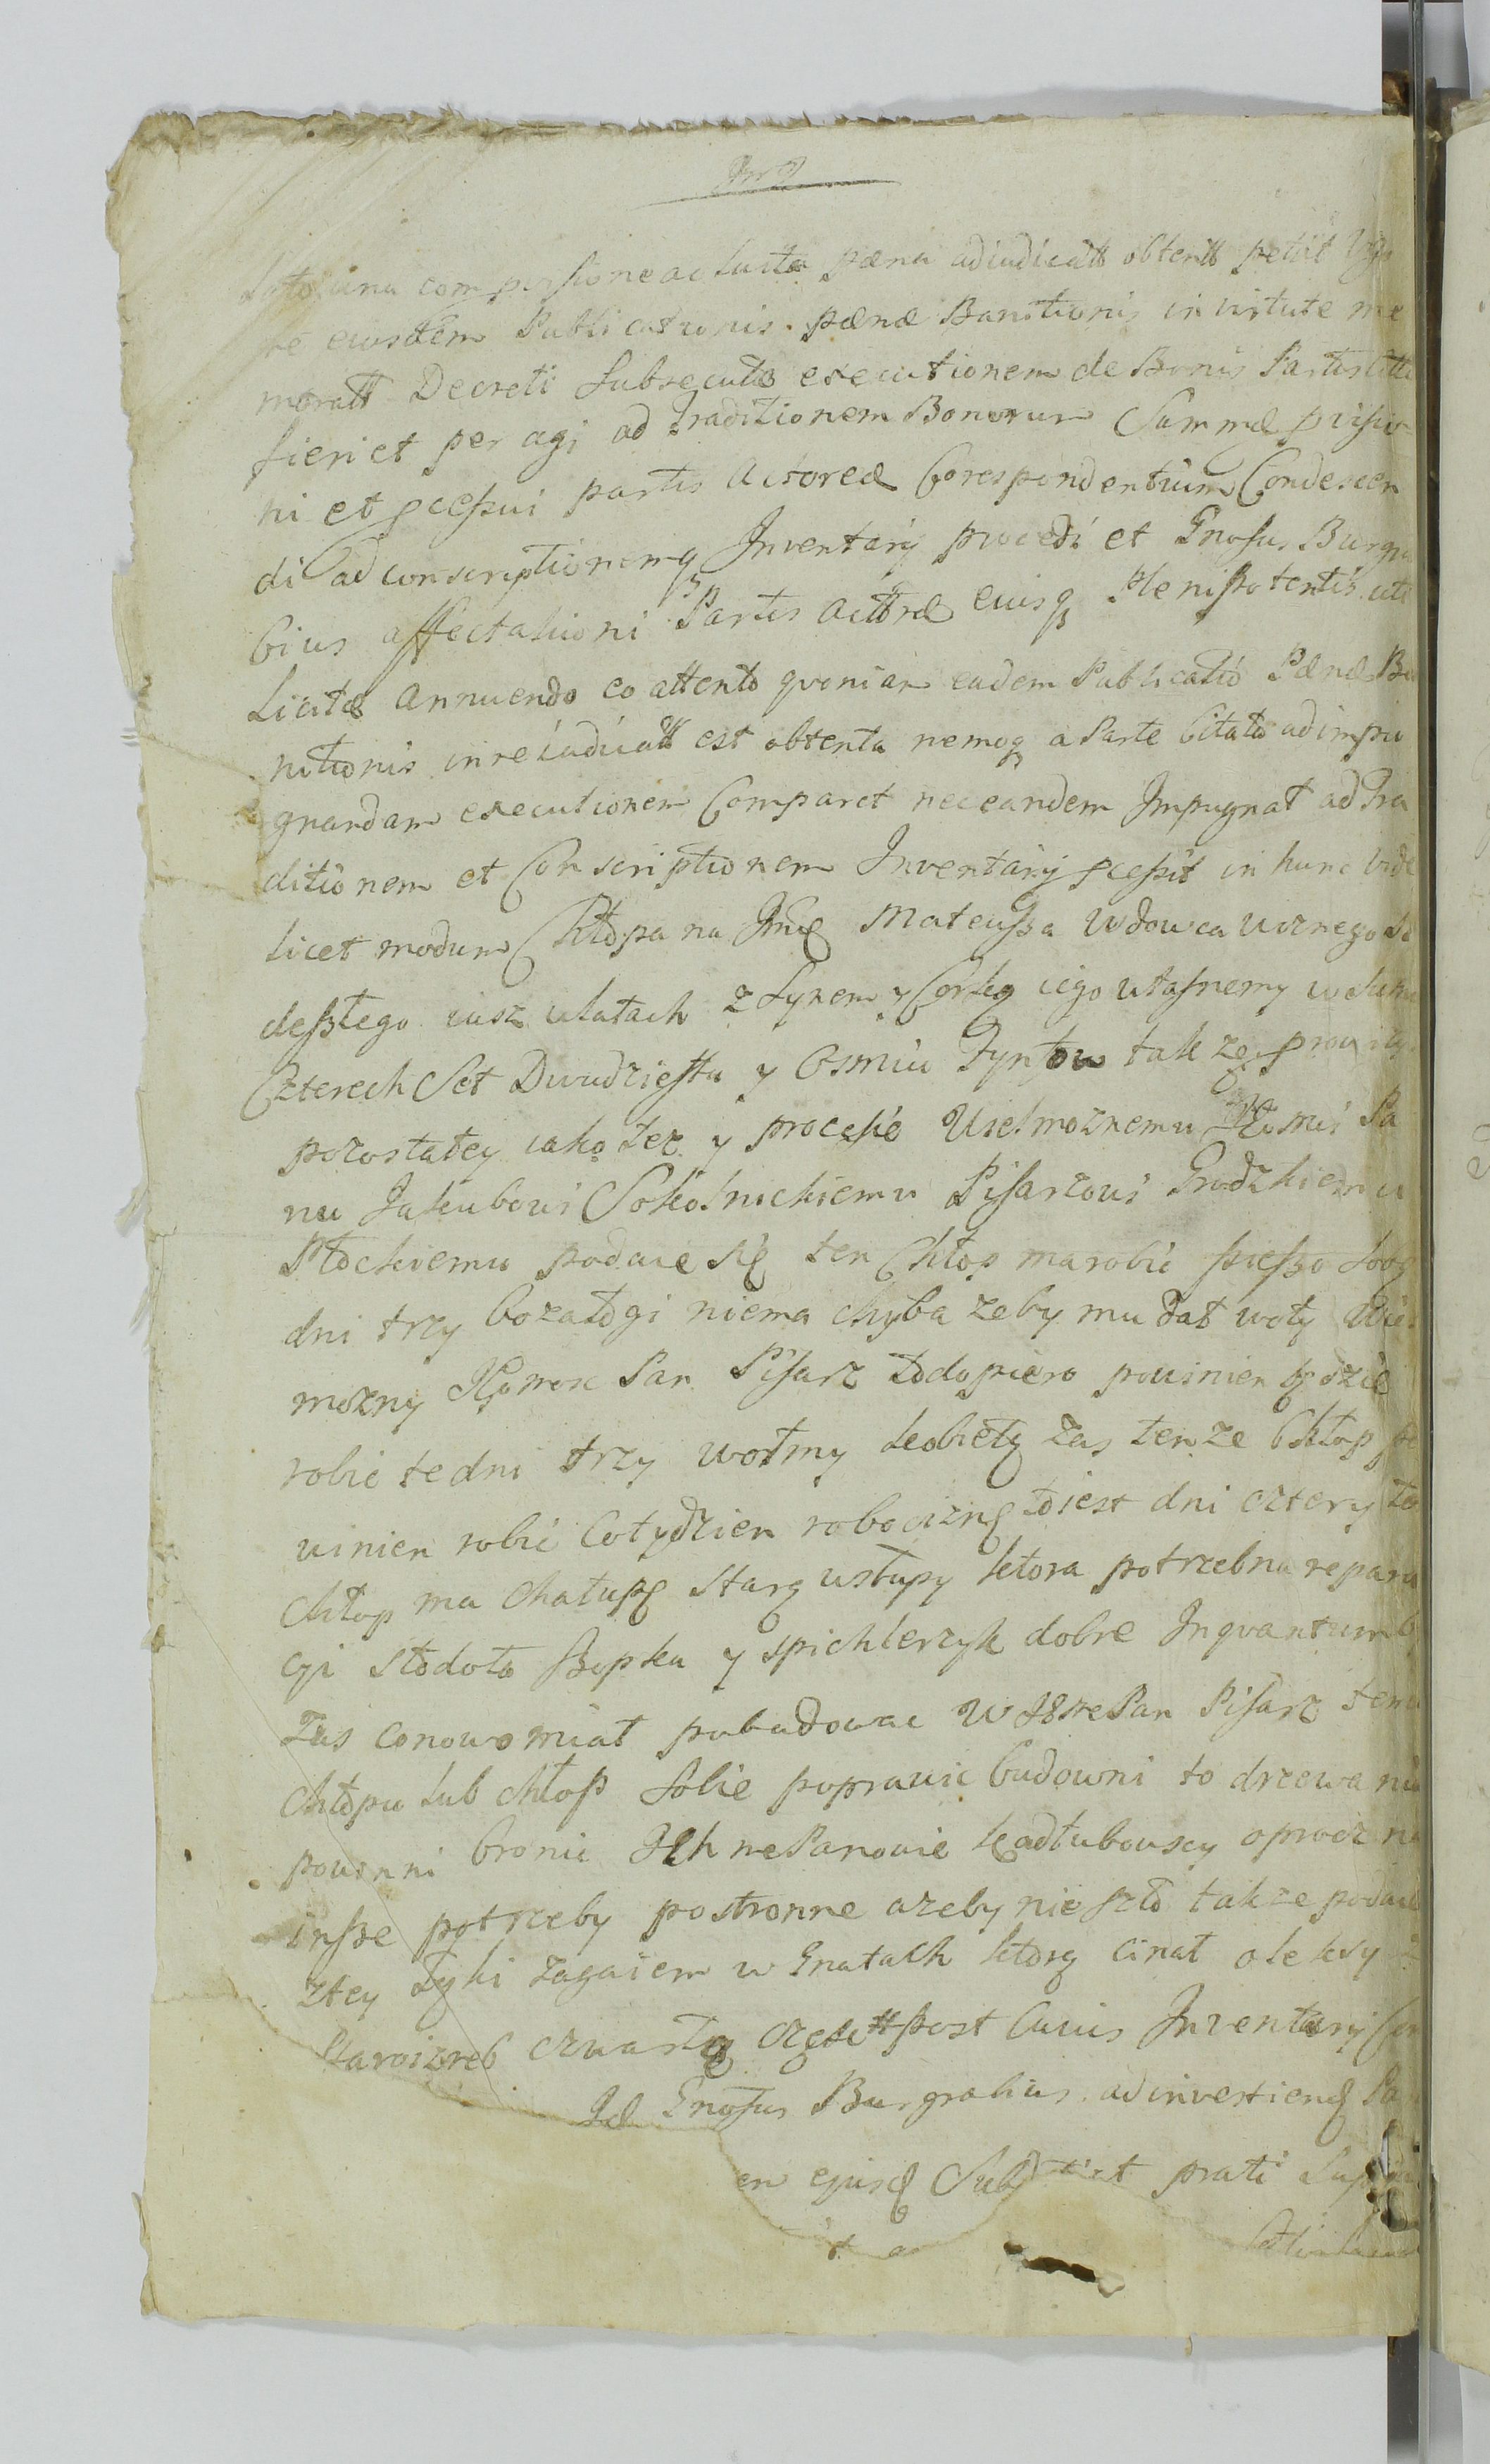 una compersione ac lucta pæna adiudicatt obtentt petiit
re eiusdem Publicationis pænæ Bannitionis in virtute me
moratt Decreti Subsecutæ executionem de Bonis Partis Citt
fieri et per agi ad Traditionem Bonorum Summæ
ni et pcessui partis Actoreæ Corespondentium Condescen
di ad conscriptionemq Inventarij procedi et Gnosus Burgra
bius affectationi Partis Actoreæ eiusq Plenipotentis uti
Licitæ annuendo eo attento quoniam eadem Publicatio Pænæ Ba
nitionis in rei iudicatt est obtenta nemoq a Parte Citata ad impu
gnandam executionem Comparet nec eandem Impugnat ad Tra
ditionem et Conscriptionem Inventarij pcessit in hunc vide
licet modum Chłopa na Jmię Mateusza Wdowca
deszłego iusz wlatach z Synem y Corką iego własnemy w Sumie
Czterech Set Dwudziestu y Osmiu Tynfow takze
pozostałey iako tez y procesie Wielmoznemu Pa
nu Jakubowi Sokolnickiemu Pisarzowi Grodzkiemu
Płockiemu podaie się ten Chłop ma robić pieszo
dni trzy bo załogi niema chyba zeby mu dał woły Wiel
mozny Jgomosc Pan Pisarz to dopiero powinien będzie
robic te dni trzy wołmy kobiety zas tenze Chłop po
winien robić Co tydzien roboczną to iest dni cztery ten
Chłop ma chałupę starą wsłupy ktora potrzebna repara
cyi stodoła Szopka y spichlerzyk dobre Inquantum by
zas co nowo miał pobudować W Jgmc Pan Pisarz temu
chłopu lub chłop sobie poprawic budowni to drzewa nie
powinni bronic Ich mc Panowie Kadłubowscy oprocz na
insze potrzeby postronne azeby nie szło takze podaie
ztey Łąki zagaiem w Gnatach ktorą cinał oleksy z
Staroizreb czwartą część post Cuius Inventarij
Id Gnosus Burgrabius ad investiend Pa
em ejusd Subdti et prati